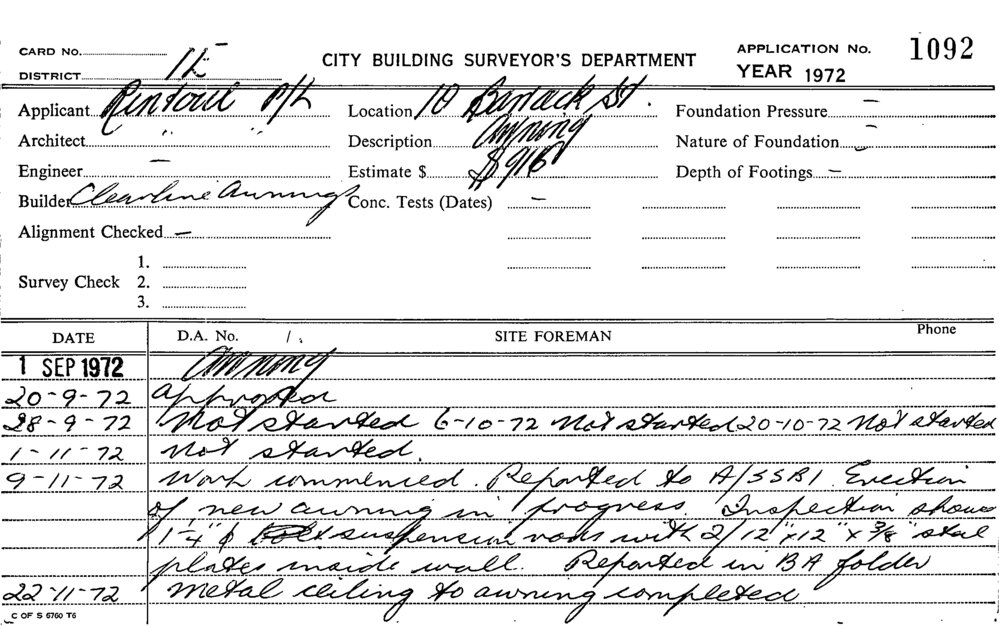 CARD No.
DISTRICT 1E
CITY BUILDING SURVEYOR'S DEPARTMENT
APPLICATION No. 1092
YEAR 1972
Applicant Rintoul P/L
Location 10 Barrack St.
Foundation Pressure –
Architect " "
Description Awning
Nature of Foundation –
Engineer –
Estimate $ $916
Depth of Footings –
Builder Clearline Awnings
Conc. Tests (Dates) –
Alignment Checked –
Survey Check 1.
2.
3.
DATE D.A. No. /. SITE FOREMAN Phone
1 SEP 1972 Awning
20-9-72 Approved
28-9-72 Not started 6-10-72 Not started 20-10-72 Not started
1-11-72 Not started.
9-11-72 Work commenced. Reported to A/SSBI. Erection
of new awning in progress. Inspection shows
1¼" ϕ suspension rods with 2/12" x 12" x ⅜" steel
plates inside wall. Reported in BA folder
22-11-72 Metal ceiling to awning completed
C OF S 6760 T6